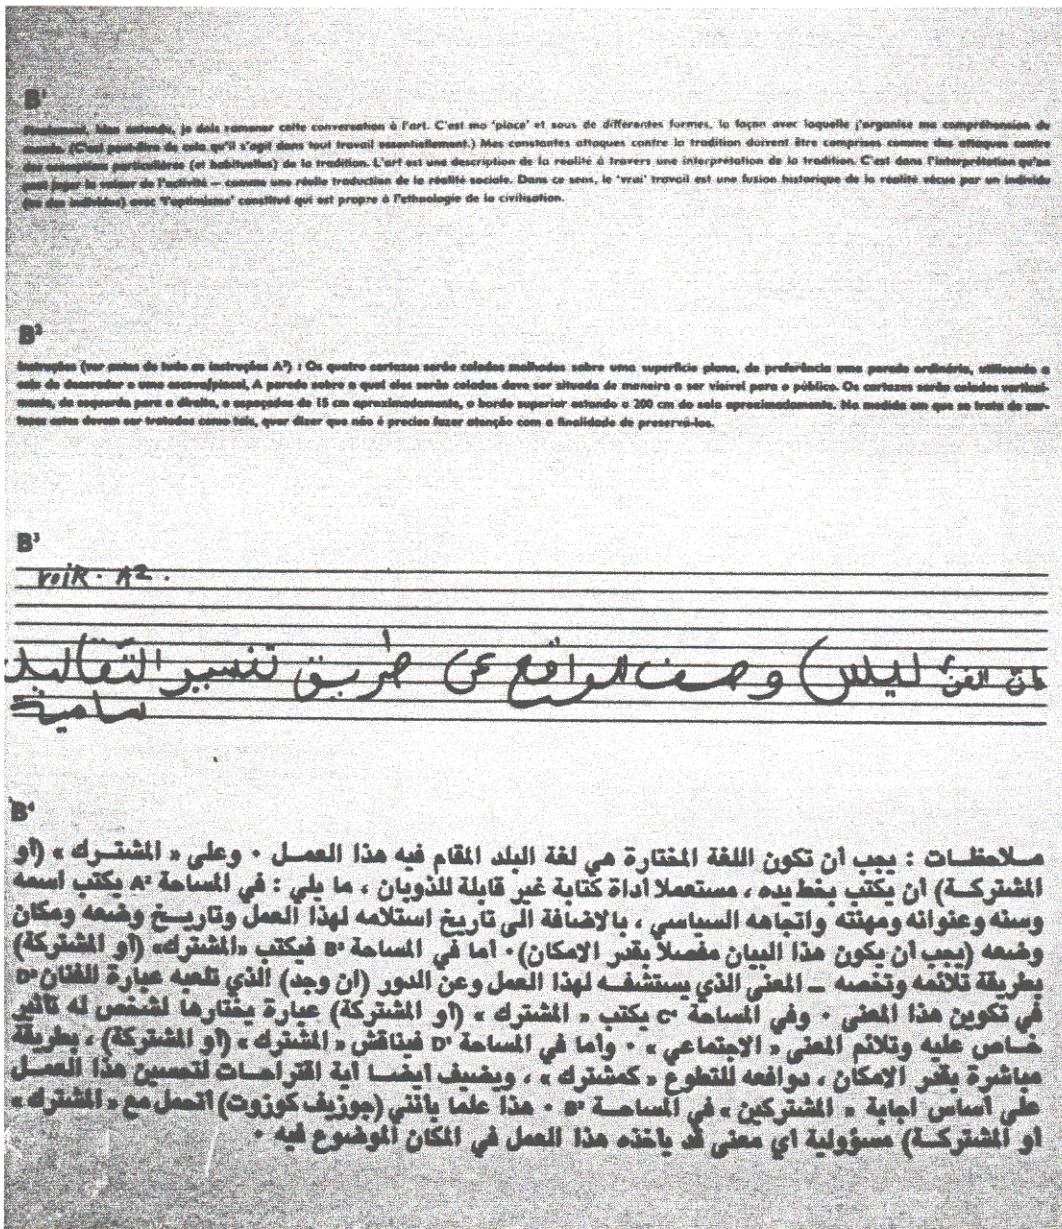 B¹
Finalement, bien entendu, je dois ramener cette conversation à l'art. C'est ma 'place' et sous de différentes formes, la façon avec laquelle j'organise ma compréhension du
monde. (C'est peut-être de cela qu'il s'agit dans tout travail essentiellement.) Mes constantes attaques contre la tradition doivent être comprises comme des attaques contre
des conceptions particulières (et habituelles) de la tradition. L'art est une description de la réalité à travers une interprétation de la tradition. C'est dans l'interprétation qu'on
peut juger la valeur de l'activité — comme une réelle traduction de la réalité sociale. Dans ce sens, le 'vrai' travail est une fusion historique de la réalité vécue par un individu
(ou des individus) avec 'l'optimisme' constitué qui est propre à l'ethnologie de la civilisation.
B²
Instruções (ver antes de tudo as instruções A²) : Os quatro cartazes serão colados molhados sobre uma superfície plana, de preferência uma parede ordinária, utilizando a
cola de decorador e uma escova/pincel. A parede sobre a qual eles serão colados deve ser situada de maneira a ser visível para o público. Os cartazes serão colados vertical-
mente, da esquerda para a direita, e espaçados de 15 cm aproximadamente, o bordo superior estando a 200 cm do solo aproximadamente. Na medida em que se trata de car-
tazes estes devem ser tratados como tais, quer dizer que não é preciso fazer atenção com a finalidade de preservá-los.
B³
voir. A2.
الفن ليس وصف للواقع عن طريق تفسير التقاليد
سامية
B⁴
مـلاحظـات : يجب أن تكون اللغة المختارة هي لغة البلد المقام فيه هذا العمـل ٠ وعلى « المشتـرك » (أو
المشتركـة) أن يكتب بخط يده ، مستعملا أداة كتابة غير قابلة للذوبان ، ما يلي : في المساحة A² يكتب اسمه
وسنه وعنوانه ومهنته واتجاهه السياسي ، بالاضافة الى تاريخ استلامه لهذا العمل وتاريـخ وضعه ومكان
وضعه (يجب أن يكون هذا البيان مفصلا بقدر الامكان)٠ أما في المساحة B³ فيكتب «المشترك» (أو المشتركة)
بطريقة تلائمه وتخصه ــ المعنى الذي يستشفـه لهذا العمل وعن الدور (ان وجد) الذي تلعبه عبارة الفنان D²
في تكوين هذا المعنى ٠ وفي المساحة C¹ يكتب « المشترك » (أو المشتركة) عبارة يختارها لشخص له تأثير
خـاص عليه وتلائم المعنى « الاجتماعي » ٠ وأما في المساحة D¹ فيناقش « المشترك » (أو المشتركة) ، بطريقة
مباشرة بقدر الامكان ، دوافعه للتطوع « كمشترك » ، ويضيف أيضـا أية اقتراحـات لتحسين هذا العمـل
على أساس اجابة « المشتركين » في المساحـة B³ ٠ هذا علما بأنني (جوزيف كوزوت) أتحمل مع « المشترك »
أو المشتركـة) مسؤولية أي معنى قد يأخذه هذا العمل في المكان الموضوع فيه ٠